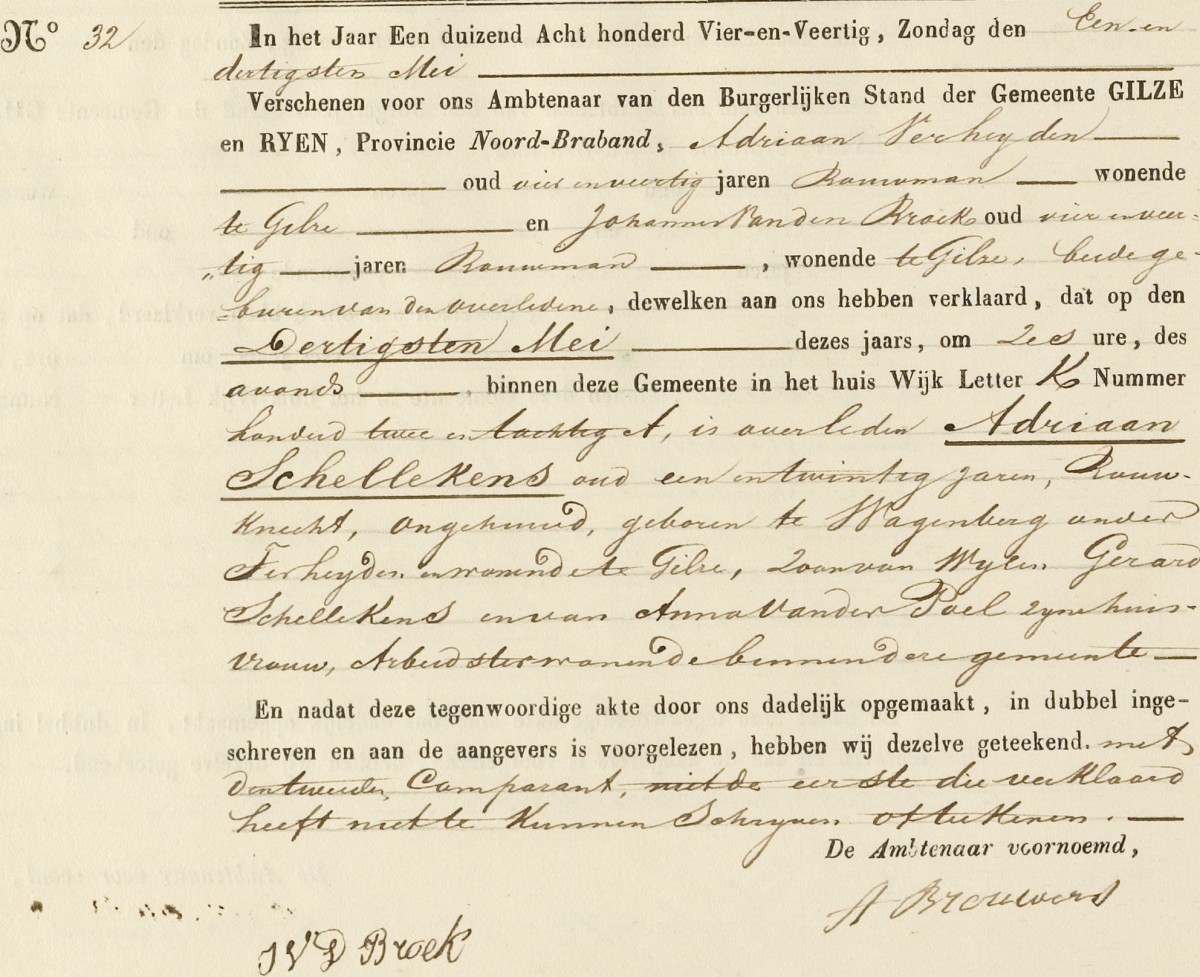 Nº 32 In het Jaar Een duizend Acht honderd Vier-en-Veertig, Zondag den Een-en
dertigsten Mei
Verschenen voor ons Ambtenaar van den Burgerlijken Stand der Gemeente GILZE
en RYEN, Provincie Noord-Braband, Adriaan Verheyden
oud vier en veertig jaren Bouwman wonende
te Gilze en Johannes Vanden Broek oud vier en veer-
„tig jaren Bouwman, wonende te Gilze, beide ge-
=buren van den overledene, dewelken aan ons hebben verklaard, dat op den
Dertigsten Mei dezes jaars, om zes ure, des
avonds binnen deze Gemeente in het huis Wijk Letter K Nummer
honderd twee en tachtig A, is overleden Adriaan
Schellekens oud een en twintig jaren, Bouw-
knecht, ongehuwd, geboren te Wagenberg onder
Terheyden en wonende te Gilze, zoon van Wylen Gerard
Schellekens en van Anna Vander Poel zyne huis-
vrouw, Arbeidster wonende binnen deze gemeente
En nadat deze tegenwoordige akte door ons dadelijk opgemaakt, in dubbel inge-
schreven en aan de aangevers is voorgelezen, hebben wij dezelve geteekend. met
den tweeden Comparant, niet de eerste die verklaard
heeft niet te kunnen Schryven of teekenen.
De Ambtenaar voornoemd,
A Brouwers
J V D Broek